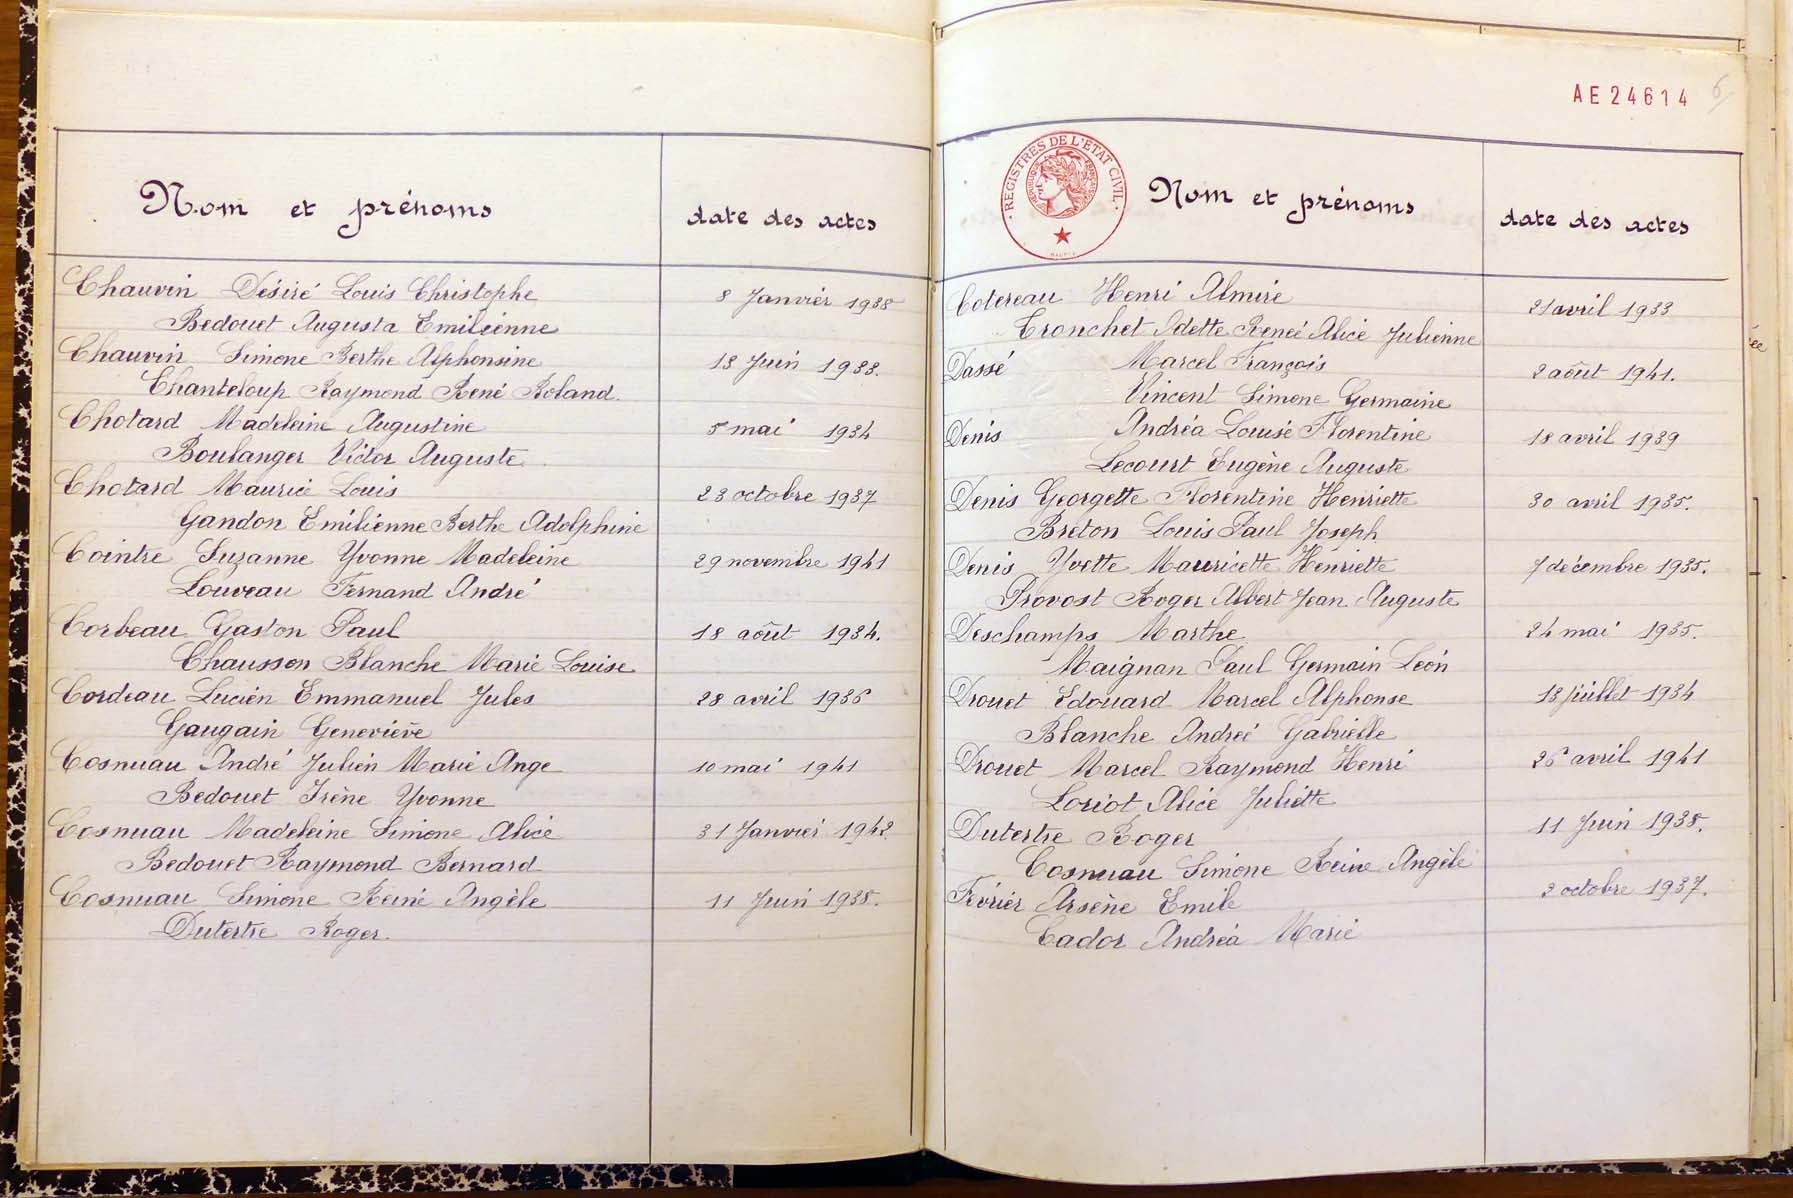 Nom et prénoms
date des actes
Chauvin Désiré Louis Christophe
8 Janvier 1938
Bedouet Augusta Emilienne
Chauvin Simone Berthe Alphonsine
13 Juin 1933.
Chanteloup Raymond René Roland.
Chotard Madeleine Augustine
5 mai 1934
Boulanger Victor Auguste
Chotard Maurice Louis
23 octobre 1937
Gandon Emilienne Berthe Adolphine
Cointre Suzanne Yvonne Madeleine
29 novembre 1941
Louveau Fernand André
Corbeau Gaston Paul
18 août 1934.
Chausson Blanche Marie Louise
Cordeau Lucien Emmanuel Jules
28 avril 1936
Gaugain Geneviève
Cosnuau André Julien Marie Ange
10 mai 1941
Bedouet Irène Yvonne
Cosnuau Madeleine Simone Alice
31 Janvier 1942
Bedouet Raymond Bernard
Cosnuau Simone Reine Angèle
11 Juin 1938.
Dutertre Roger.
AE24614
6
REGISTRES DE L'ETAT CIVIL
Nom et prénoms
date des actes
Cotereau Henri Almire
21 avril 1933
Tronchet Odette Reneé Alice Julienne
Dassé Marcel François
2 août 1941.
Vincent Simone Germaine
Denis Andréa Louise Florentine
18 avril 1939
Lecourt Eugène Auguste
Denis Georgette Florentine Henriette
30 avril 1935.
Breton Louis Paul Joseph
Denis Yvette Mauricette Henriette
7 décembre 1935.
Provost Roger Albert Jean Auguste
Deschamps Marthe
24 mai 1935.
Maignan Paul Germain Léon
Drouet Edouard Marcel Alphonse
13 juillet 1934
Blanche Andreé Gabrielle
Drouet Marcel Raymond Henri
26 avril 1941
Loriot Alice Juliette
Dutertre Roger
11 Juin 1938.
Cosnuau Simone Reine Angèle
Février Arsène Emile
2 octobre 1937.
Cador Andréa Marie